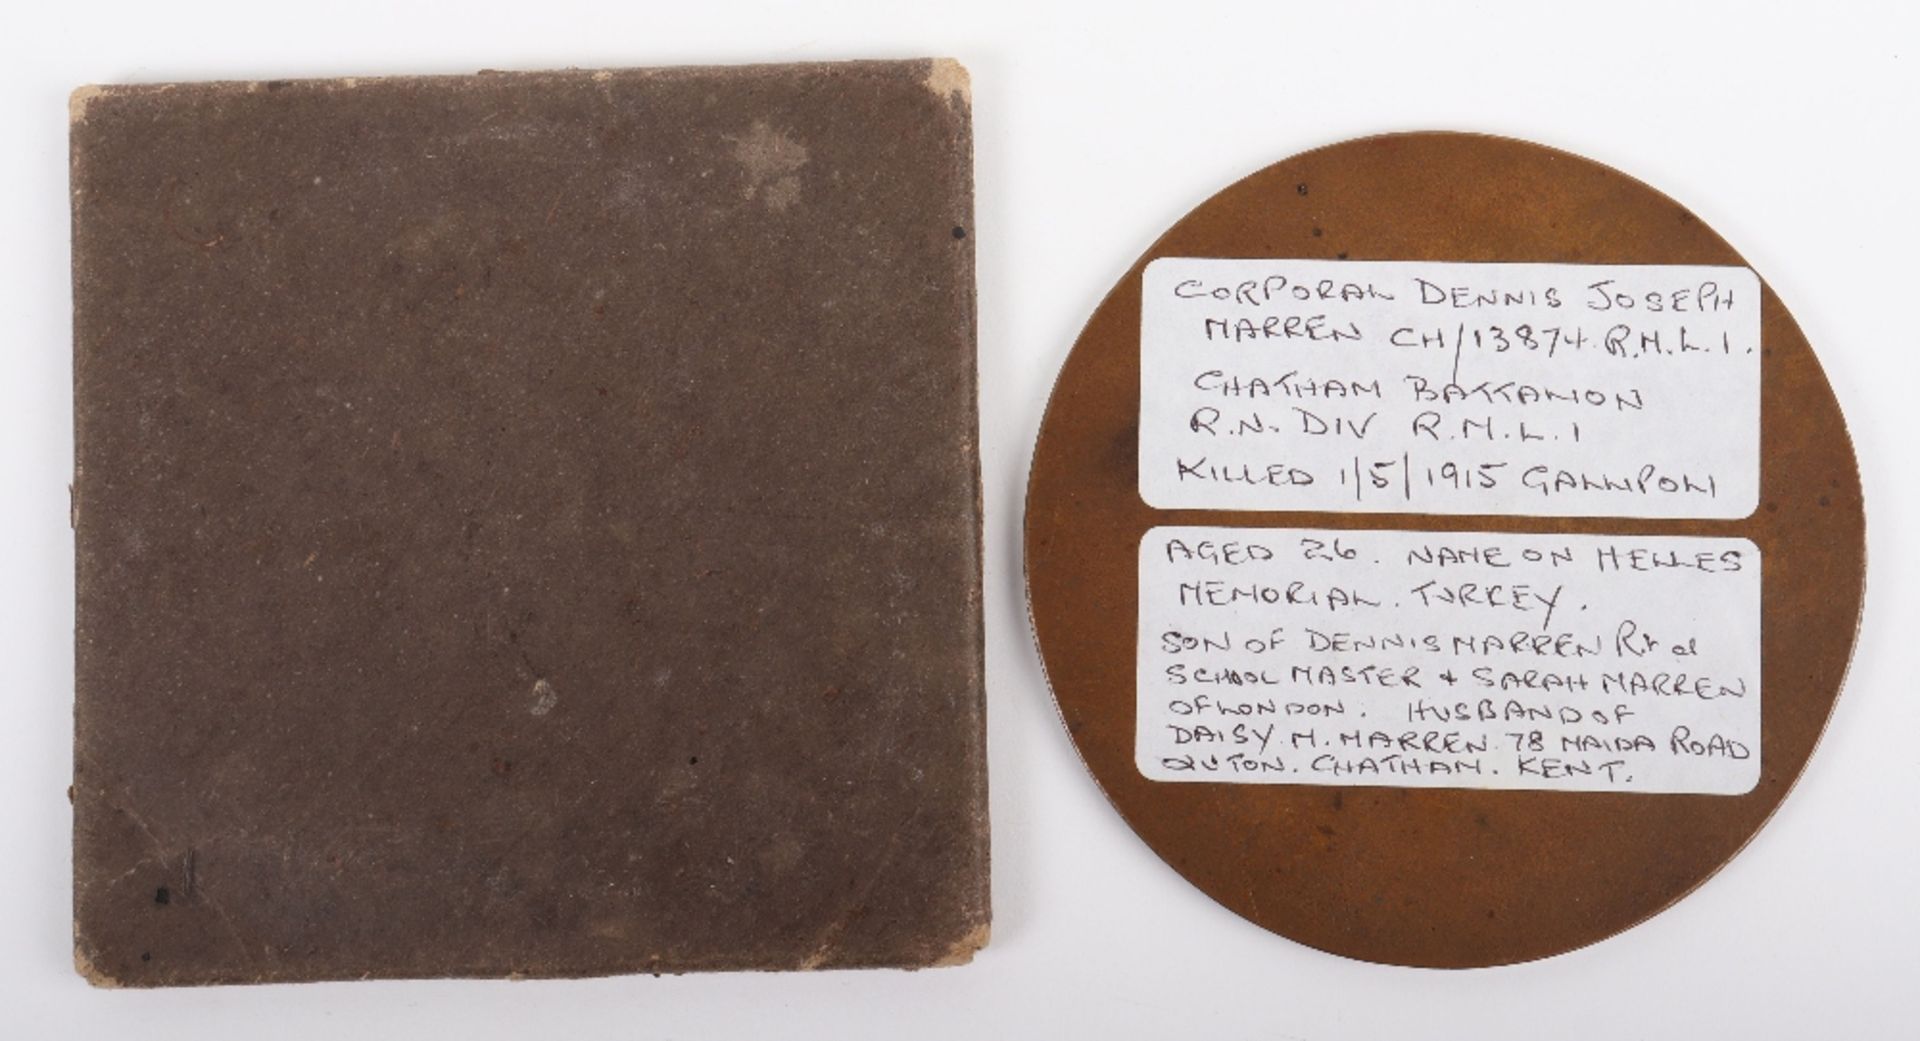 CORPORAL DENNIS JOSEPH
MARREN CH/13874. R.M.L.I.
CHATHAM BATTALION
R.N. DIV R.M.L.I
KILLED 1/5/1915 GALLIPOLI
AGED 26. NAME ON HELLES
MEMORIAL. TURKEY.
SON OF DENNIS MARREN Rtd
SCHOOL MASTER + SARAH MARREN
OF LONDON. HUSBAND OF
DAISY. M. MARREN. 78 MAIDA ROAD
LUTON. CHATHAM. KENT.